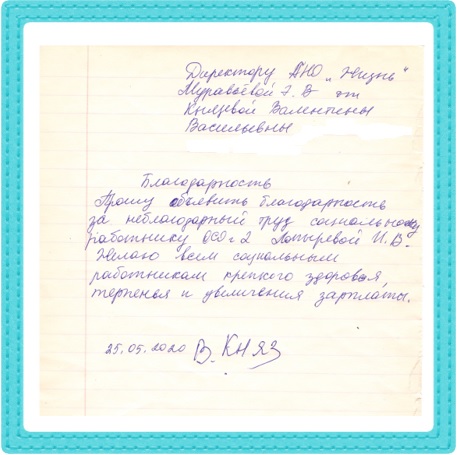 Директору АНО „Жизнь“
Муравьёвой Э. В от
Князевой Валентены
Васильевны
Благодарность
Прошу объявить благодарность
за неблагодарный труд социальному
работнику ОСО-2 Лопыревой И. В.
Желаю всем социальным
работникам крепкого здоровья,
терпенья и увеличения зарплаты.
25.05.2020 В. Княз